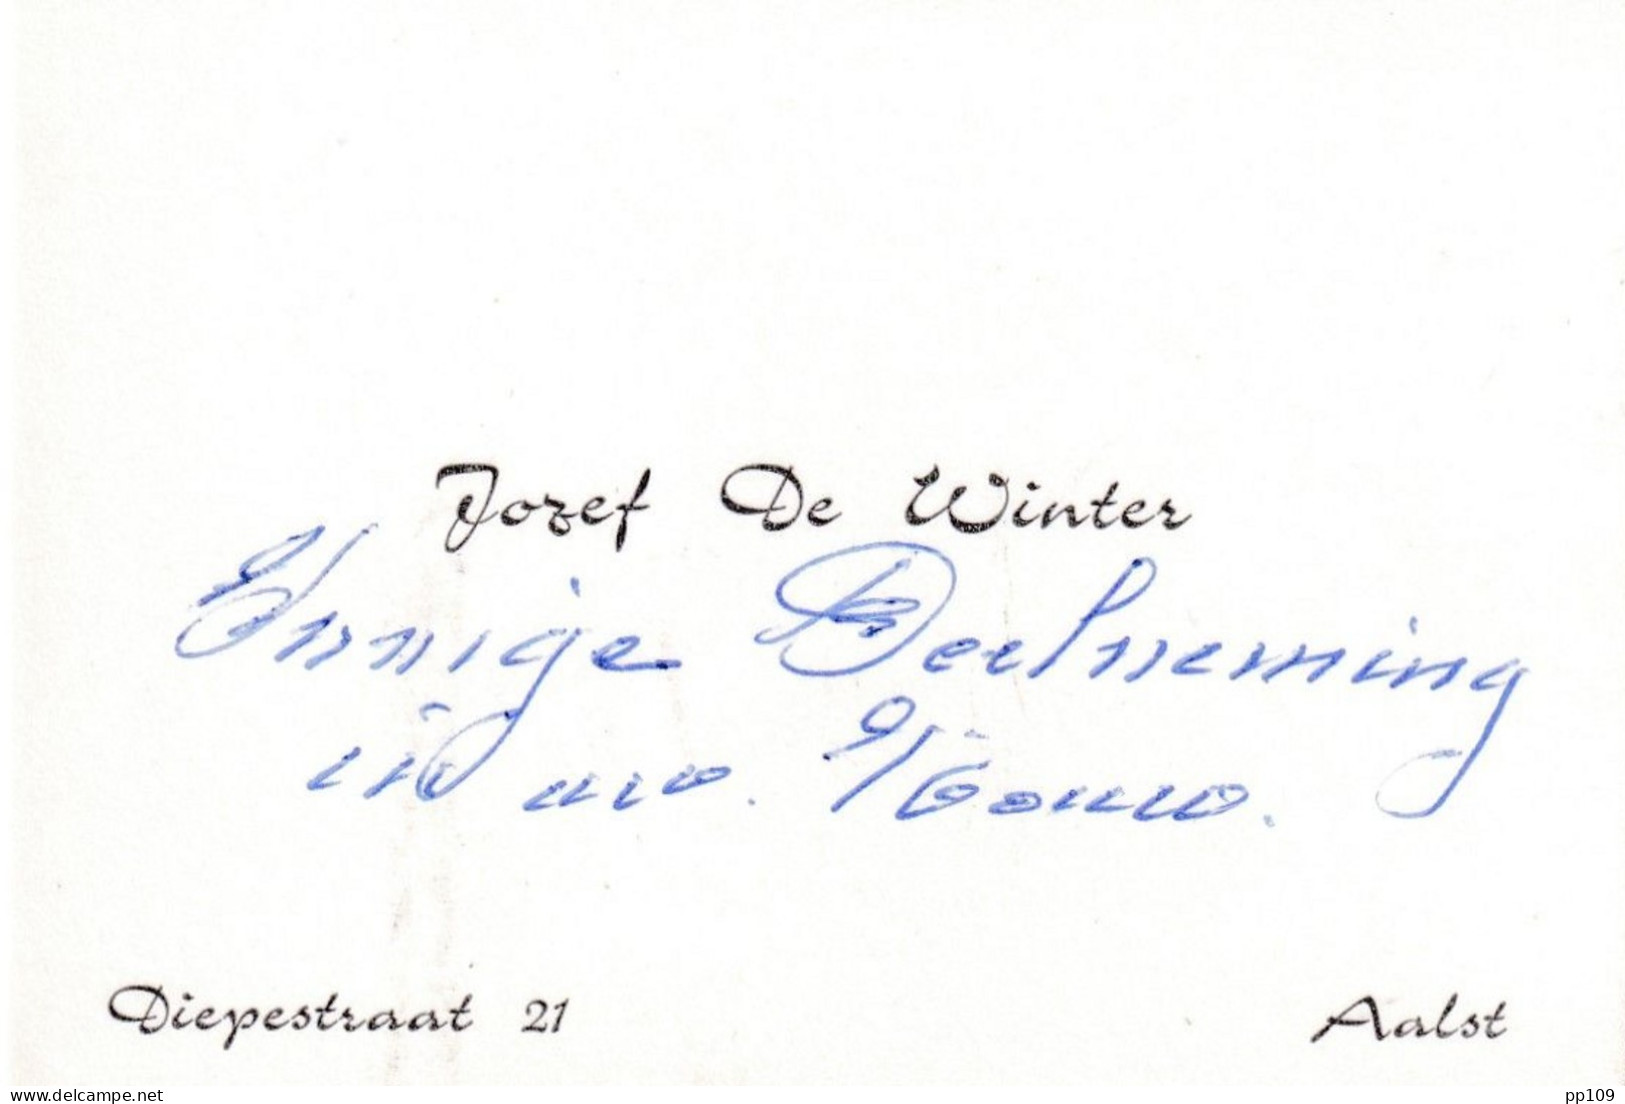 Jozef De Winter
Innige Deelneming
in uw. Rouw.
Diepestraat 21 Aalst
delcampe.net pp109